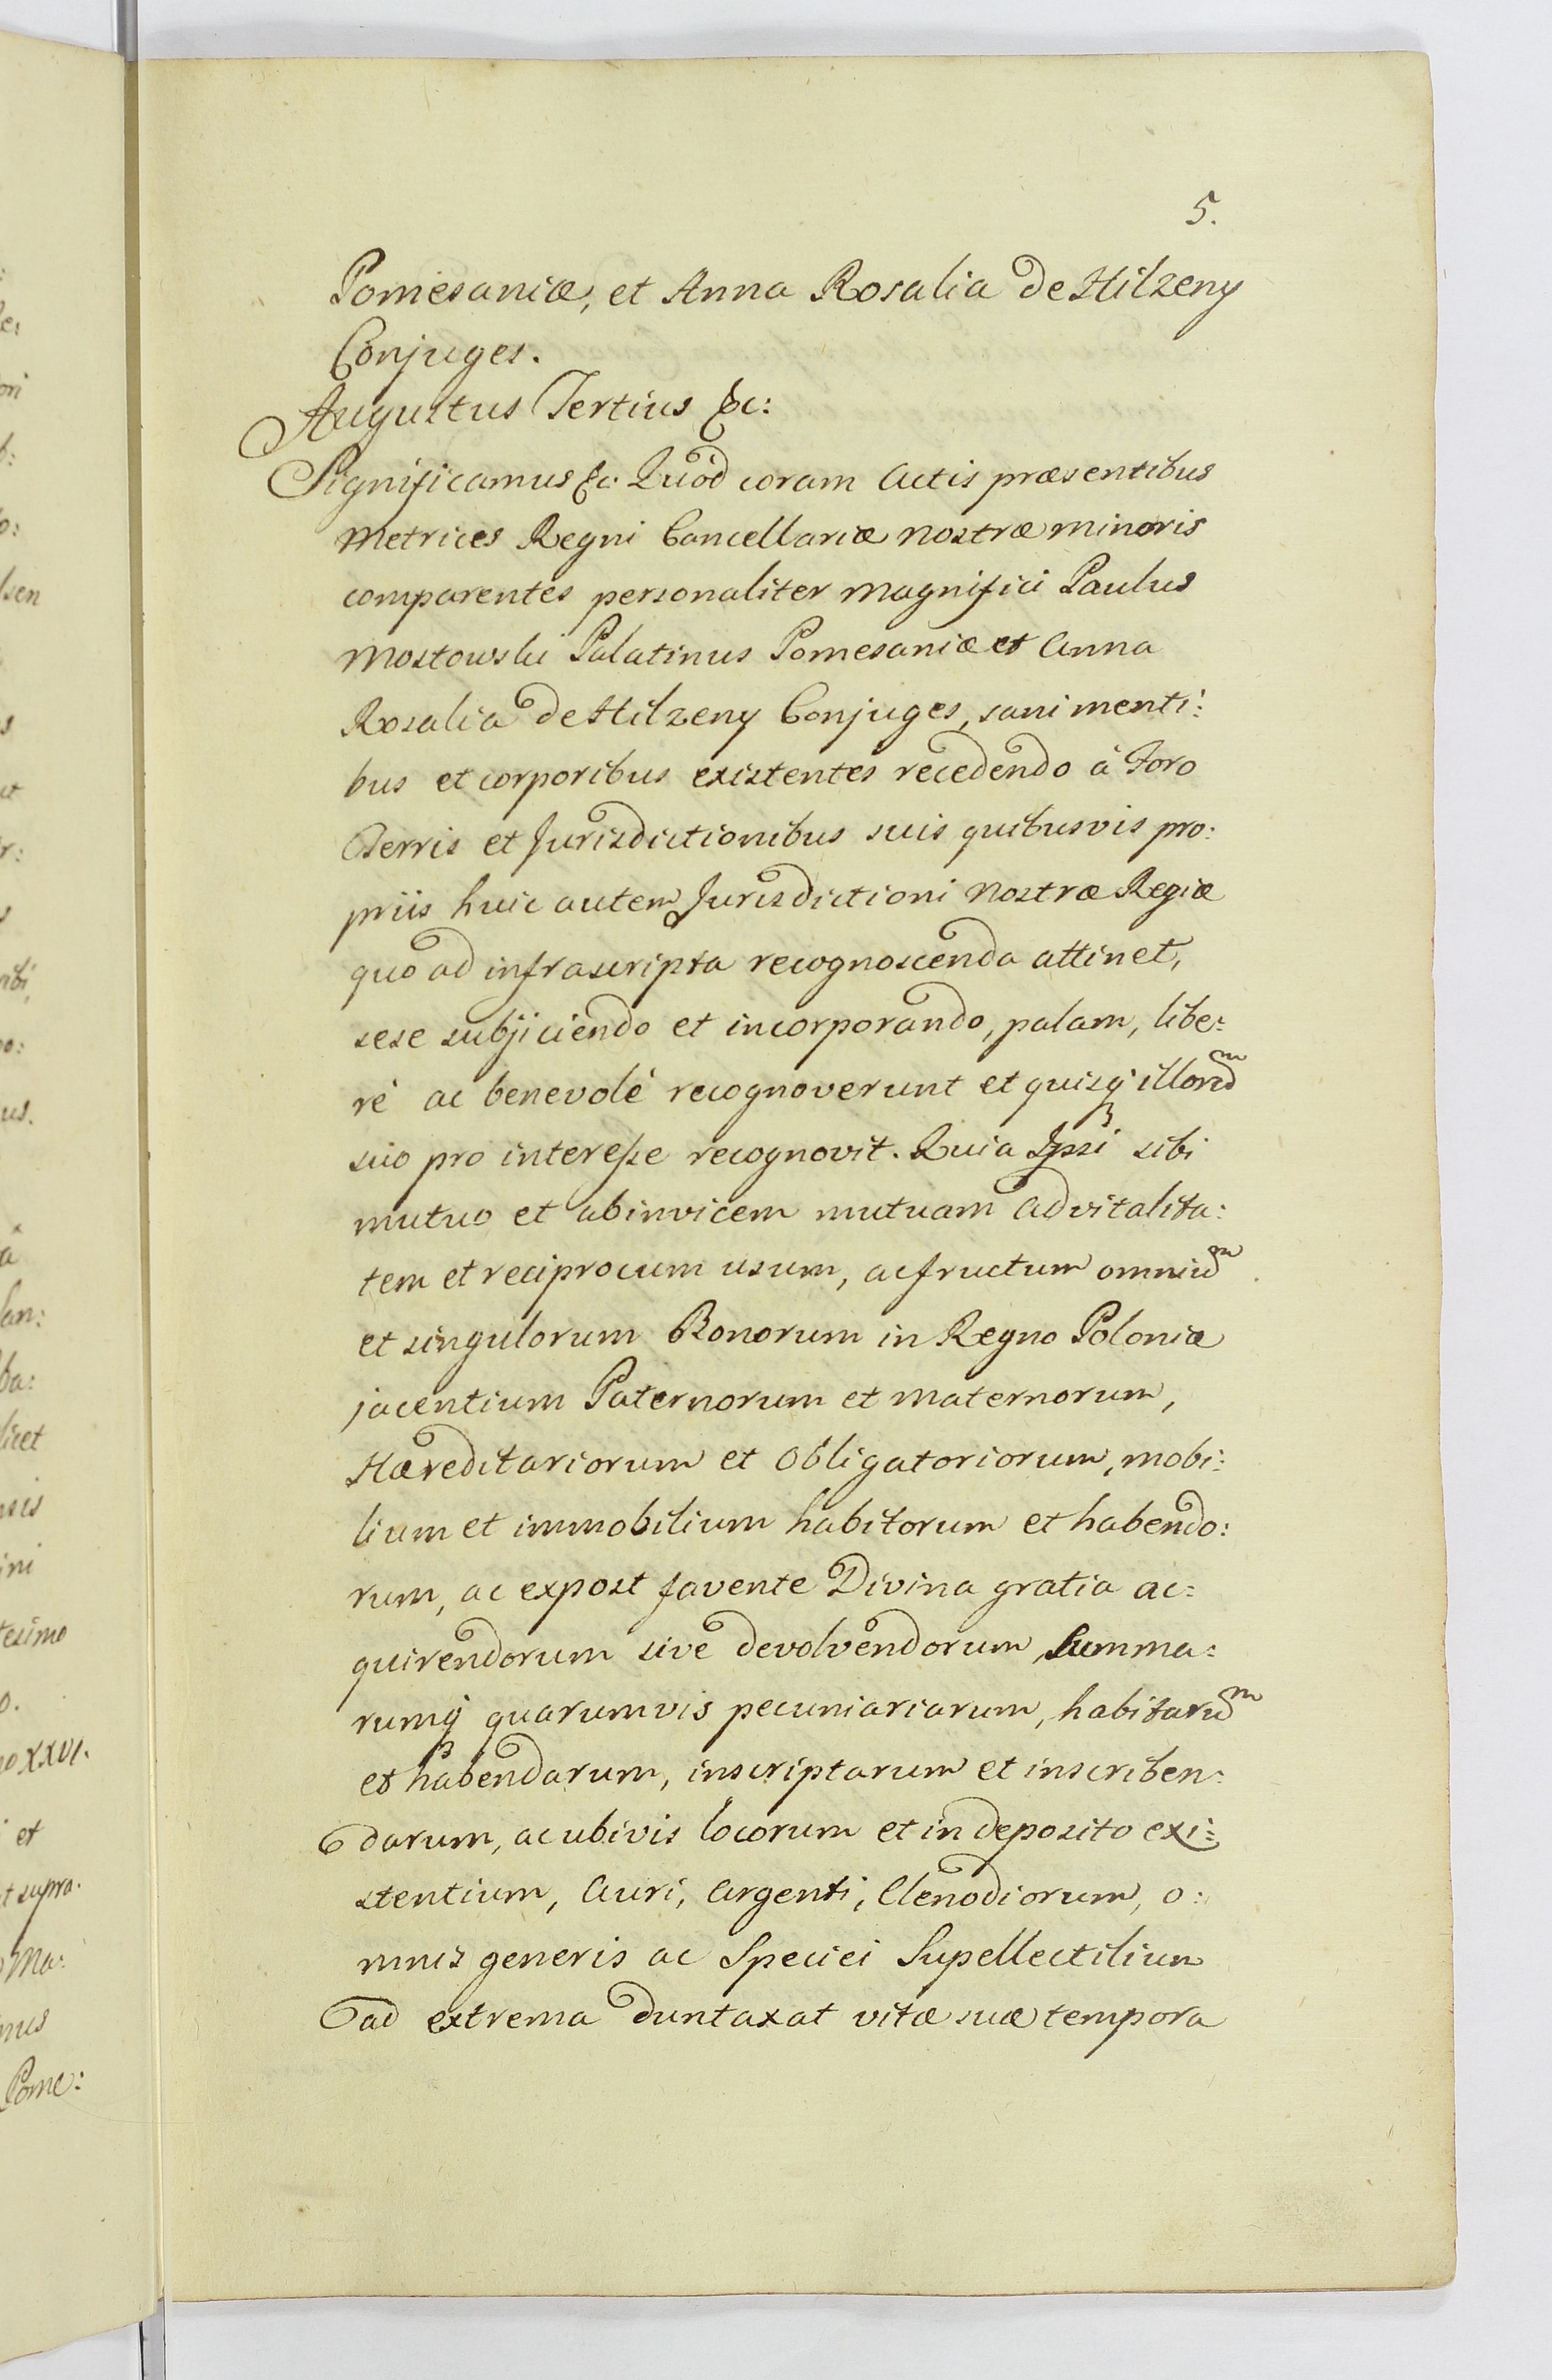 5.
Pomesaniæ, et Anna Rosalia de Hilzeny
Conjuges.
Augustus Tertius &c:
Significamus &c: Quòd coram Actis præsentibus
Metrices Regni Cancellariæ Nostræ Minoris
comparentes personaliter Magnifici Paulus
Mostowski Palatinus Pomesaniæ et Anna
Rosalia de Hilzeny Conjuges, sani menti:
bus et corporibus existentes recedendo à Foro
Terris et Jurisdictionibus suis quibusvis pro:
priis huic autem Jurisdictioni Nostræ Regiæ
quo ad infrascripta recognoscenda attinet,
sese subjiciendo et incorporando, palam, libe:
rè ac benevolè recognoverunt et quisq; illorũm
suo pro interesse recognovit. Quia Ipsi sibi
mutuo et abinvicem mutuam Advitalita:
tem et reciprocum usum, ac fructum omniũm
et singulorum Bonorum in Regno Poloniæ
jacentium Paternorum et Maternorum,
Hæreditariorum et Obligatoriorum, mobi:
lium et immobilium habitorum et habendo:
rum, ac expost favente Divina gratia ac:
quirendorum sive devolvendorum, Summa:
rumq; quarumvis pecuniariarum, habitarũm
et habendarum, inscriptarum et inscriben:
darum, ac ubivis locorum et in deposito exi:
stentium, Auri, Argenti, Clenodiorum, o:
mnis generis ac Speciei Supellectilium
ad extrema duntaxat vitæ suæ tempora